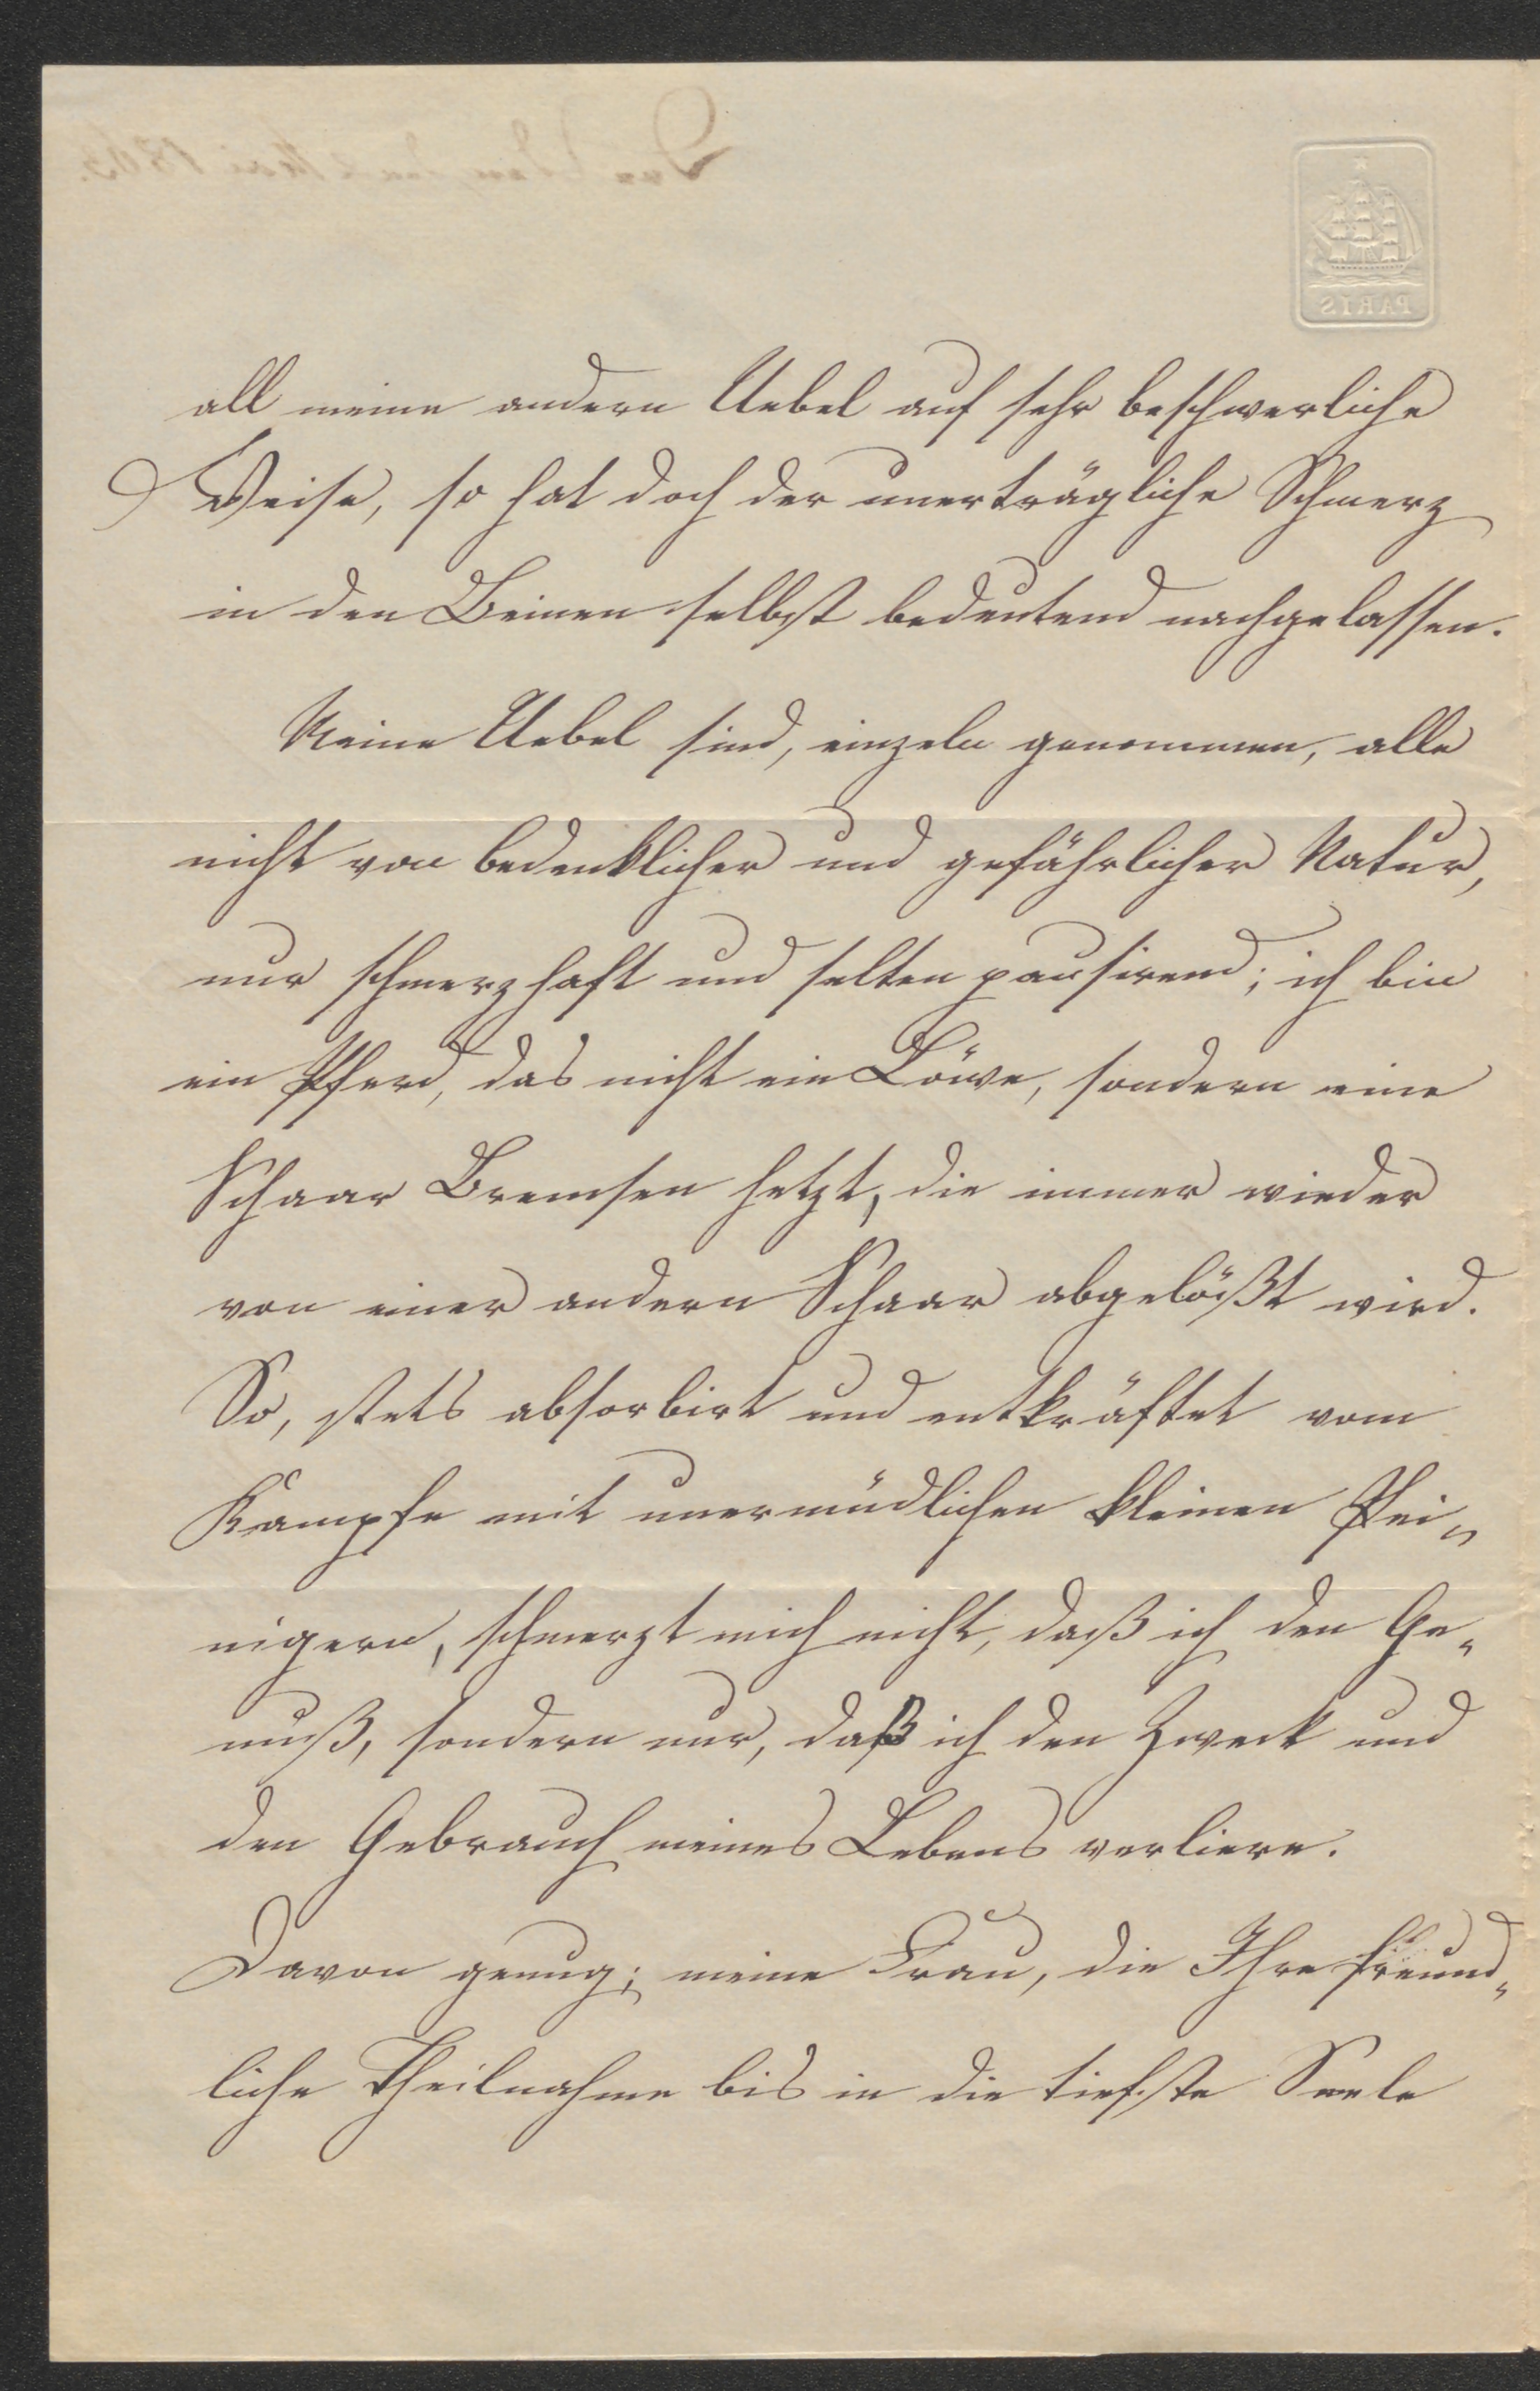 PARIS
all meine andern Uebel auf sehr beschwerliche
Weise, so hat doch der unerträgliche Schmerz
in den Beinen selbst bedeutend nachgelassen.
Meine Uebel sind, einzeln genommen, alle
nicht von bedenklicher und gefährlicher Natur,
nur schmerzhaft und selten pausirend; ich bin
ein Pferd, das nicht ein Löwe, sondern eine
Schaar Bremsen hetzt, die immer wieder
von einer andern Schaar abgelößt wird.
So, stets absorbirt und entkräftet vom
Kampfe mit unermüdlichen kleinen Pei„
nigern, schmerzt mich nicht, daß ich den Ge„
nuß, sondern nur, daß ich den Zweck und
den Gebrauch meines Lebens verliere.
Davon genug; meine Frau, die Ihre freund„
liche Theilnahme bis in die tiefste Seele